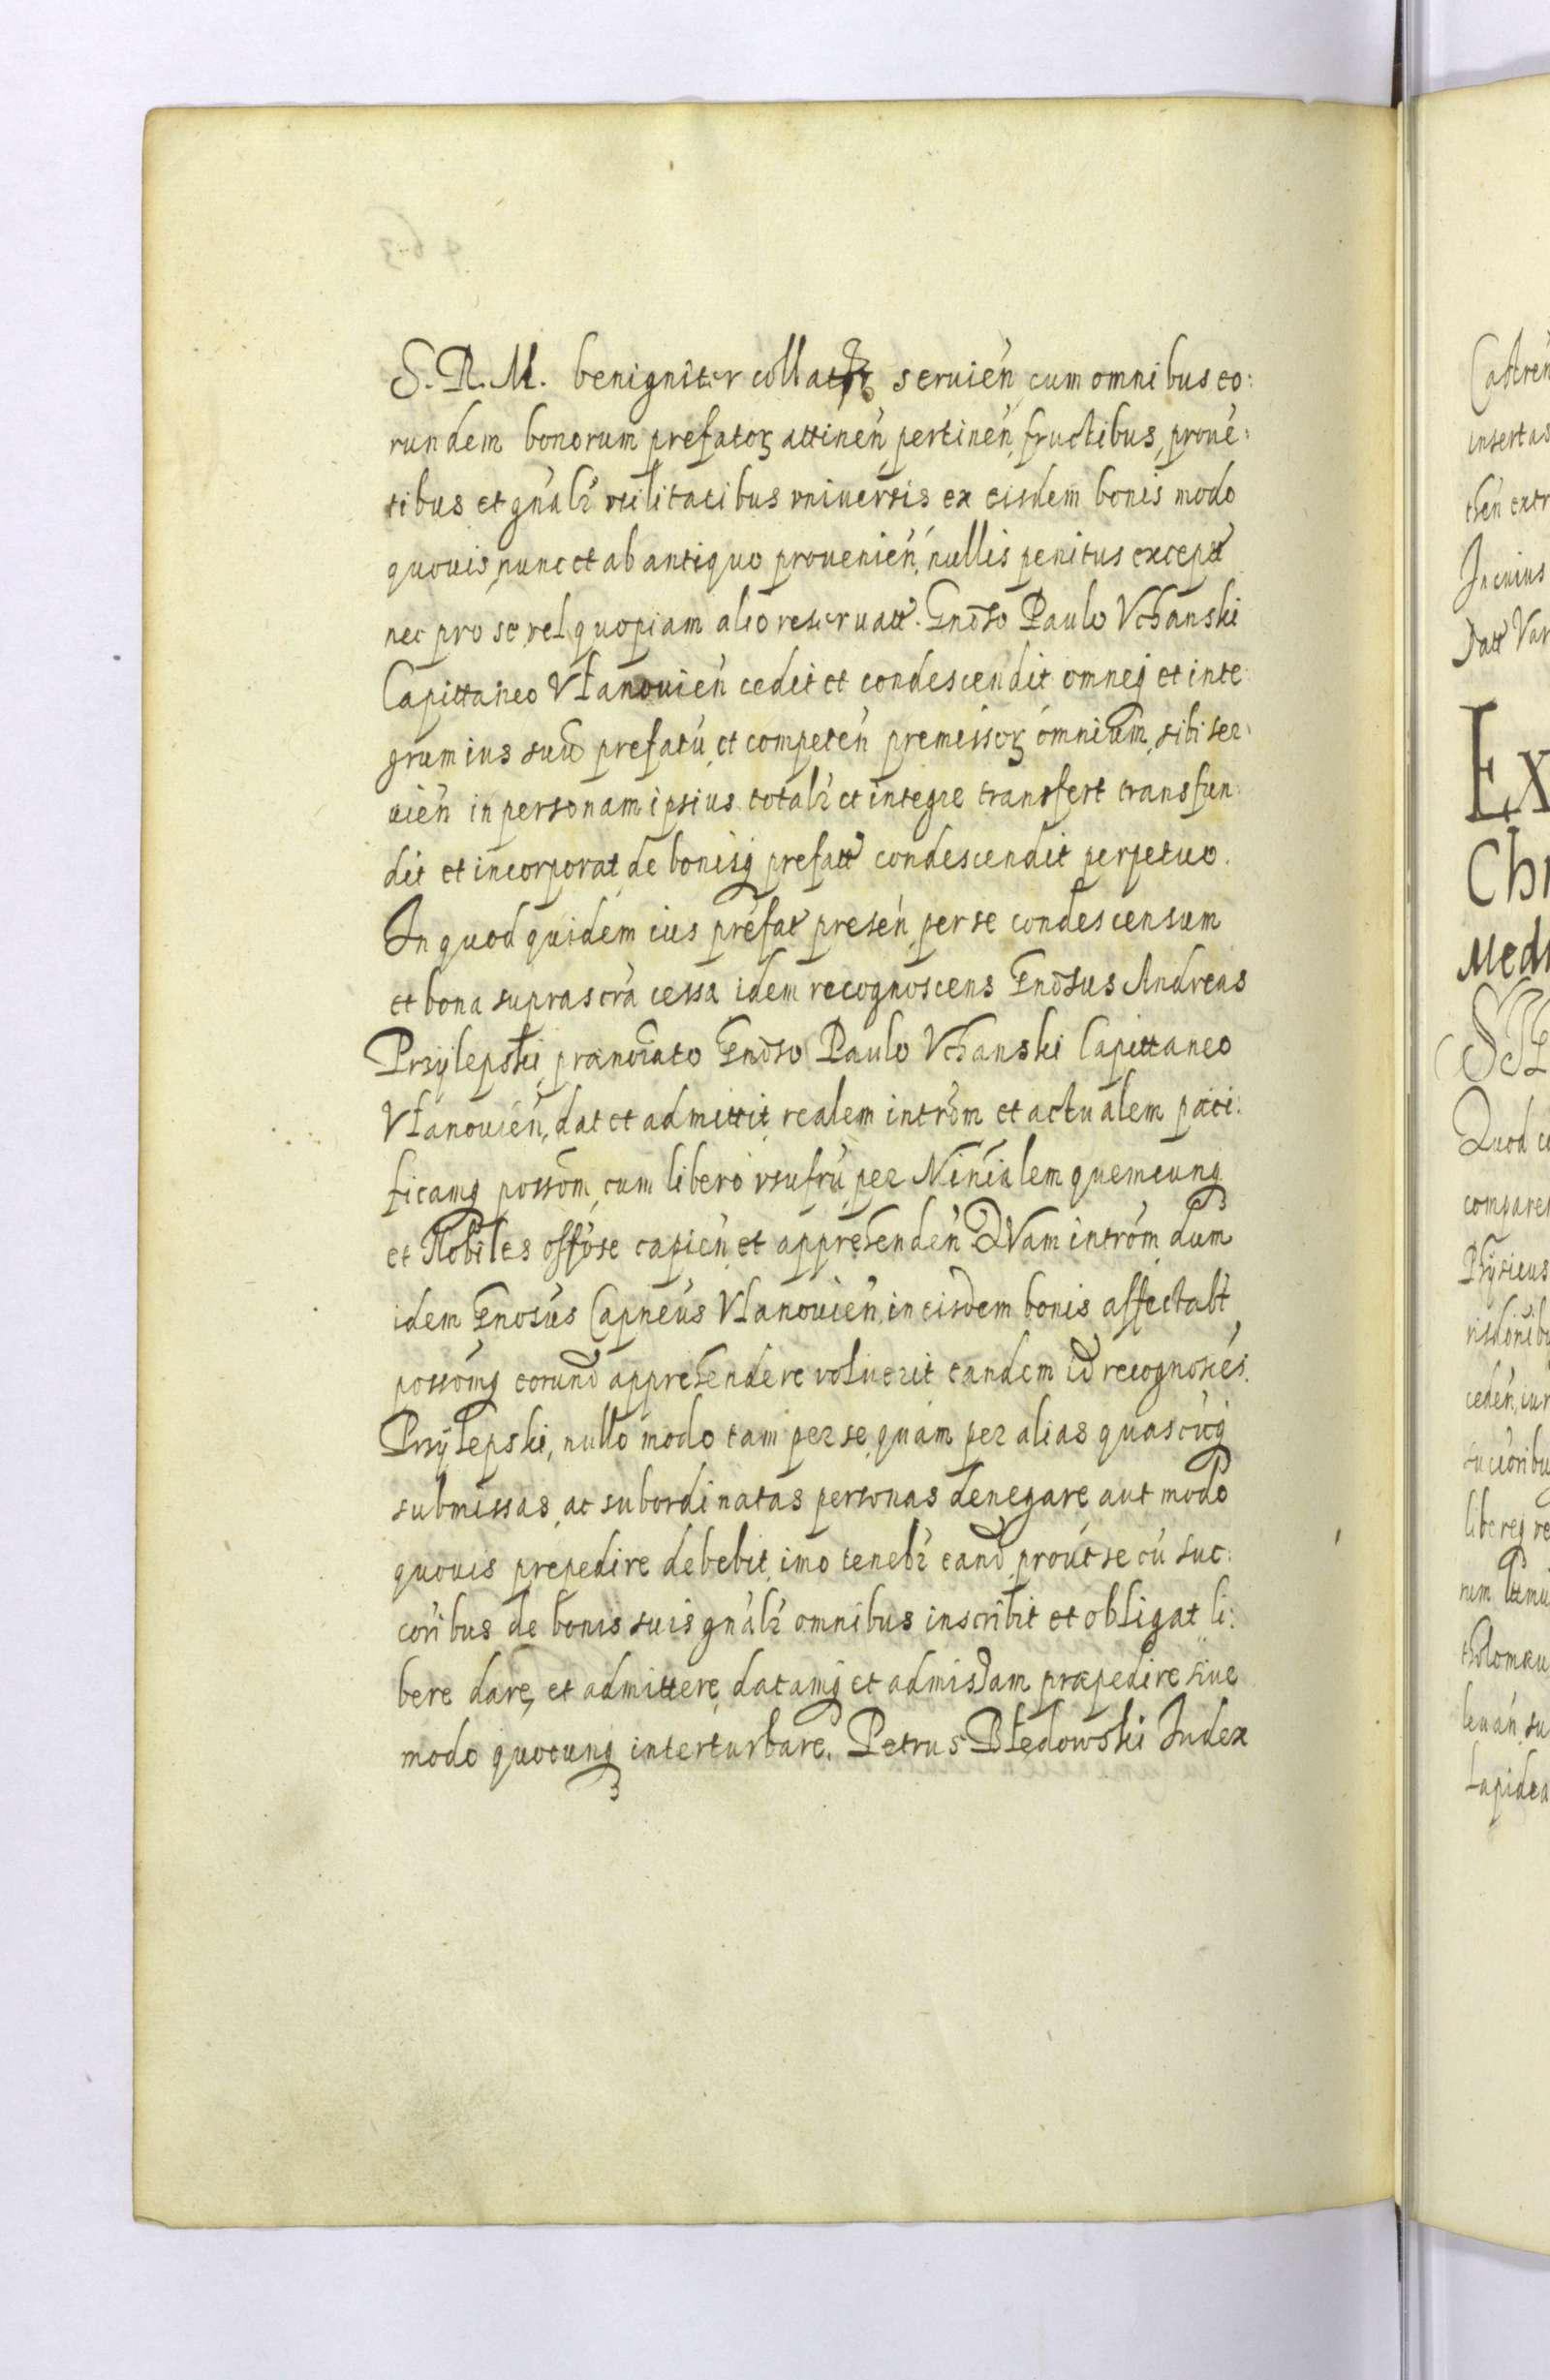 S. R. M. benigniter collatꝝ seruień cum omnibus eo:
rundem bonorum prefatoꝝ attineń pertineń, fructibus, proué:
tibus et gńalr̃ vtilitatibus vniuersis ex eisdem bonis modo
quouis, nunc et ab antiquo prouenień, nullis penitus exceptt
nec pro se, vel quopiam alio reseruatt. Gnõso Paulo Vchanski
Capittaneo Vłanouień cedit et condescendit omneq̃ et inte
grum ius suũ prefatú, et competeń premissoꝝ omnium, sibi ser:
uień in personam ipsius totalr̃ et integre transfert transfun:
dit et incorporat, de bonisq̃ prefatt condescendit perpetuo.
In quod quidem ius prefat preseń, per se condescensum
et bona suprascrã cessa idem recognoscens Gnõsus Andreas
Przÿlepski, prænoĩato Gnõso Paulo Vchanski Capittaneo
Vłanouień, dat et admittit realem intrõm et actualem paci:
ficamq̃ possõm, cum libero vsufrú, per Minĩalem quemcunq̃
et Nobiles offóse capień, et apprehendeń. QVam intróm dum
idem Gnosús Capneús Vłanouień, in eisdem bonis affectabt̃,
possõmq̃ eorunď apprehendere voluerit eandem iď recognoscés.
Przÿlepski, nullo modo tam per se, quàm per alias quascúq̃
submissas, ac subordinatas personas denegare, aut modo
quouis prepedire debebit, imo tenebr̃ eanď, prout se cú suc:
coribus de bonis suis gńalr̃ omnibus inscribit et obligat li:
bere dare, et admittere, datamq̃ et admissam præpedire siue
modo quocunq̃ interturbare. Petrus Błędowski Iudex